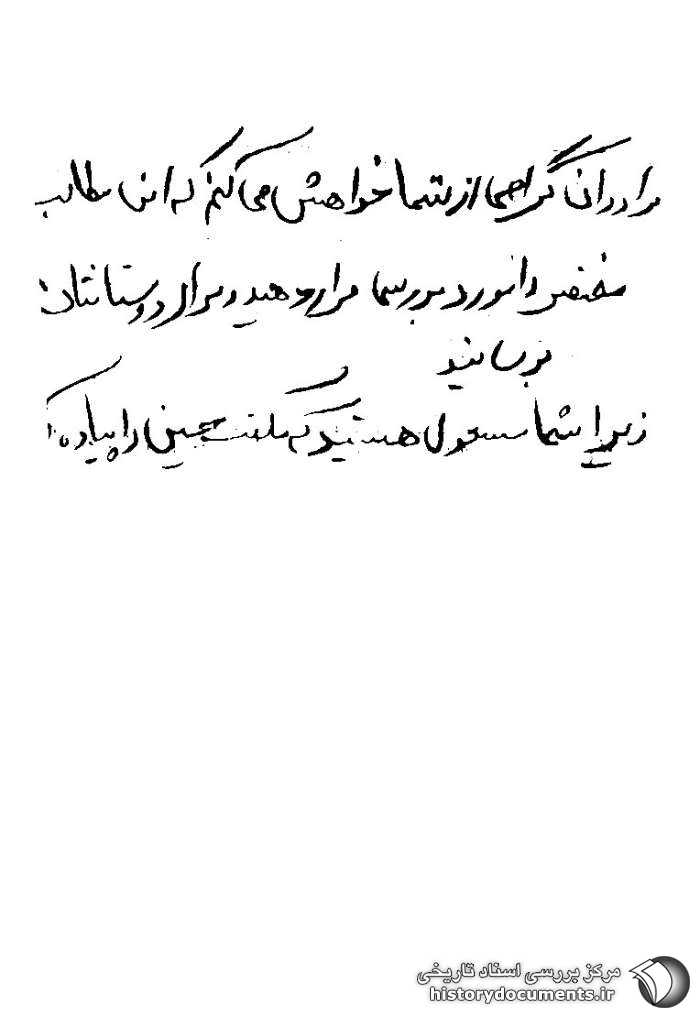 برادران گرامی از شما خواهش می کنم که این مطالب
مختصر را مورد بررسی قرار دهید و برای دوستانتان
برسانید
زیرا شما مسئول هستید که حسین را پیاده
مرکز بررسی اسناد تاریخی
historydocuments.ir